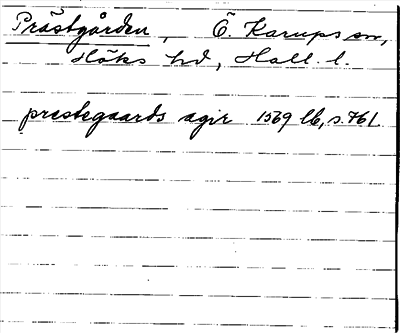 Prästgården, Ö. Karups sn,
Höks hd, Hall. l.
prestegaards agir 1569 lb, s. 761